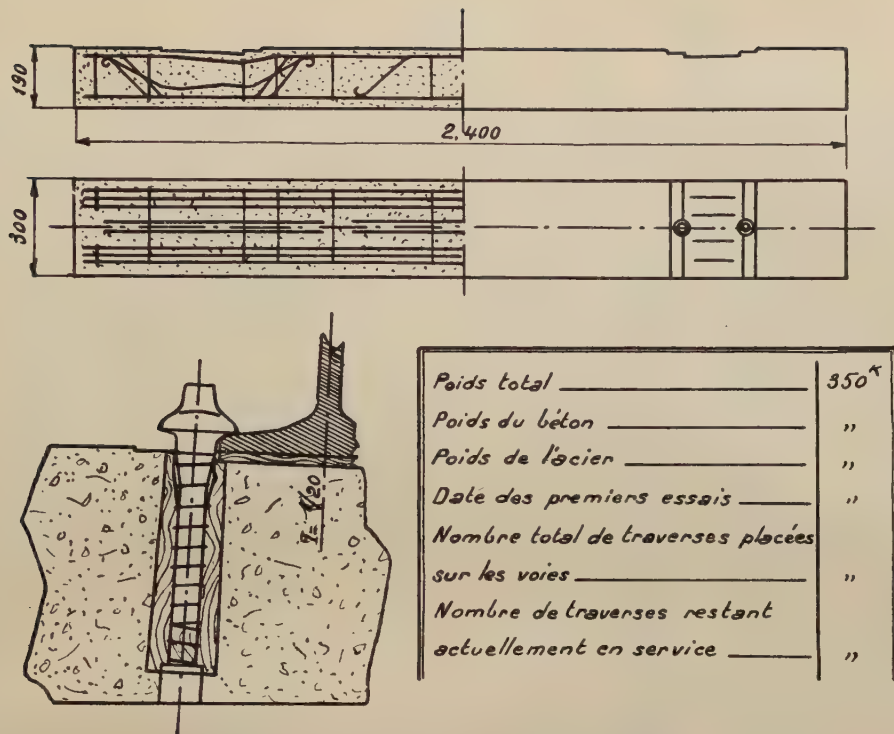 190
2.400
300
I = 1/20
Poids total 350 K
Poids du béton „
Poids de l'acier „
Date des premiers essais „
Nombre total de traverses placées
sur les voies „
Nombre de traverses restant
actuellement en service „